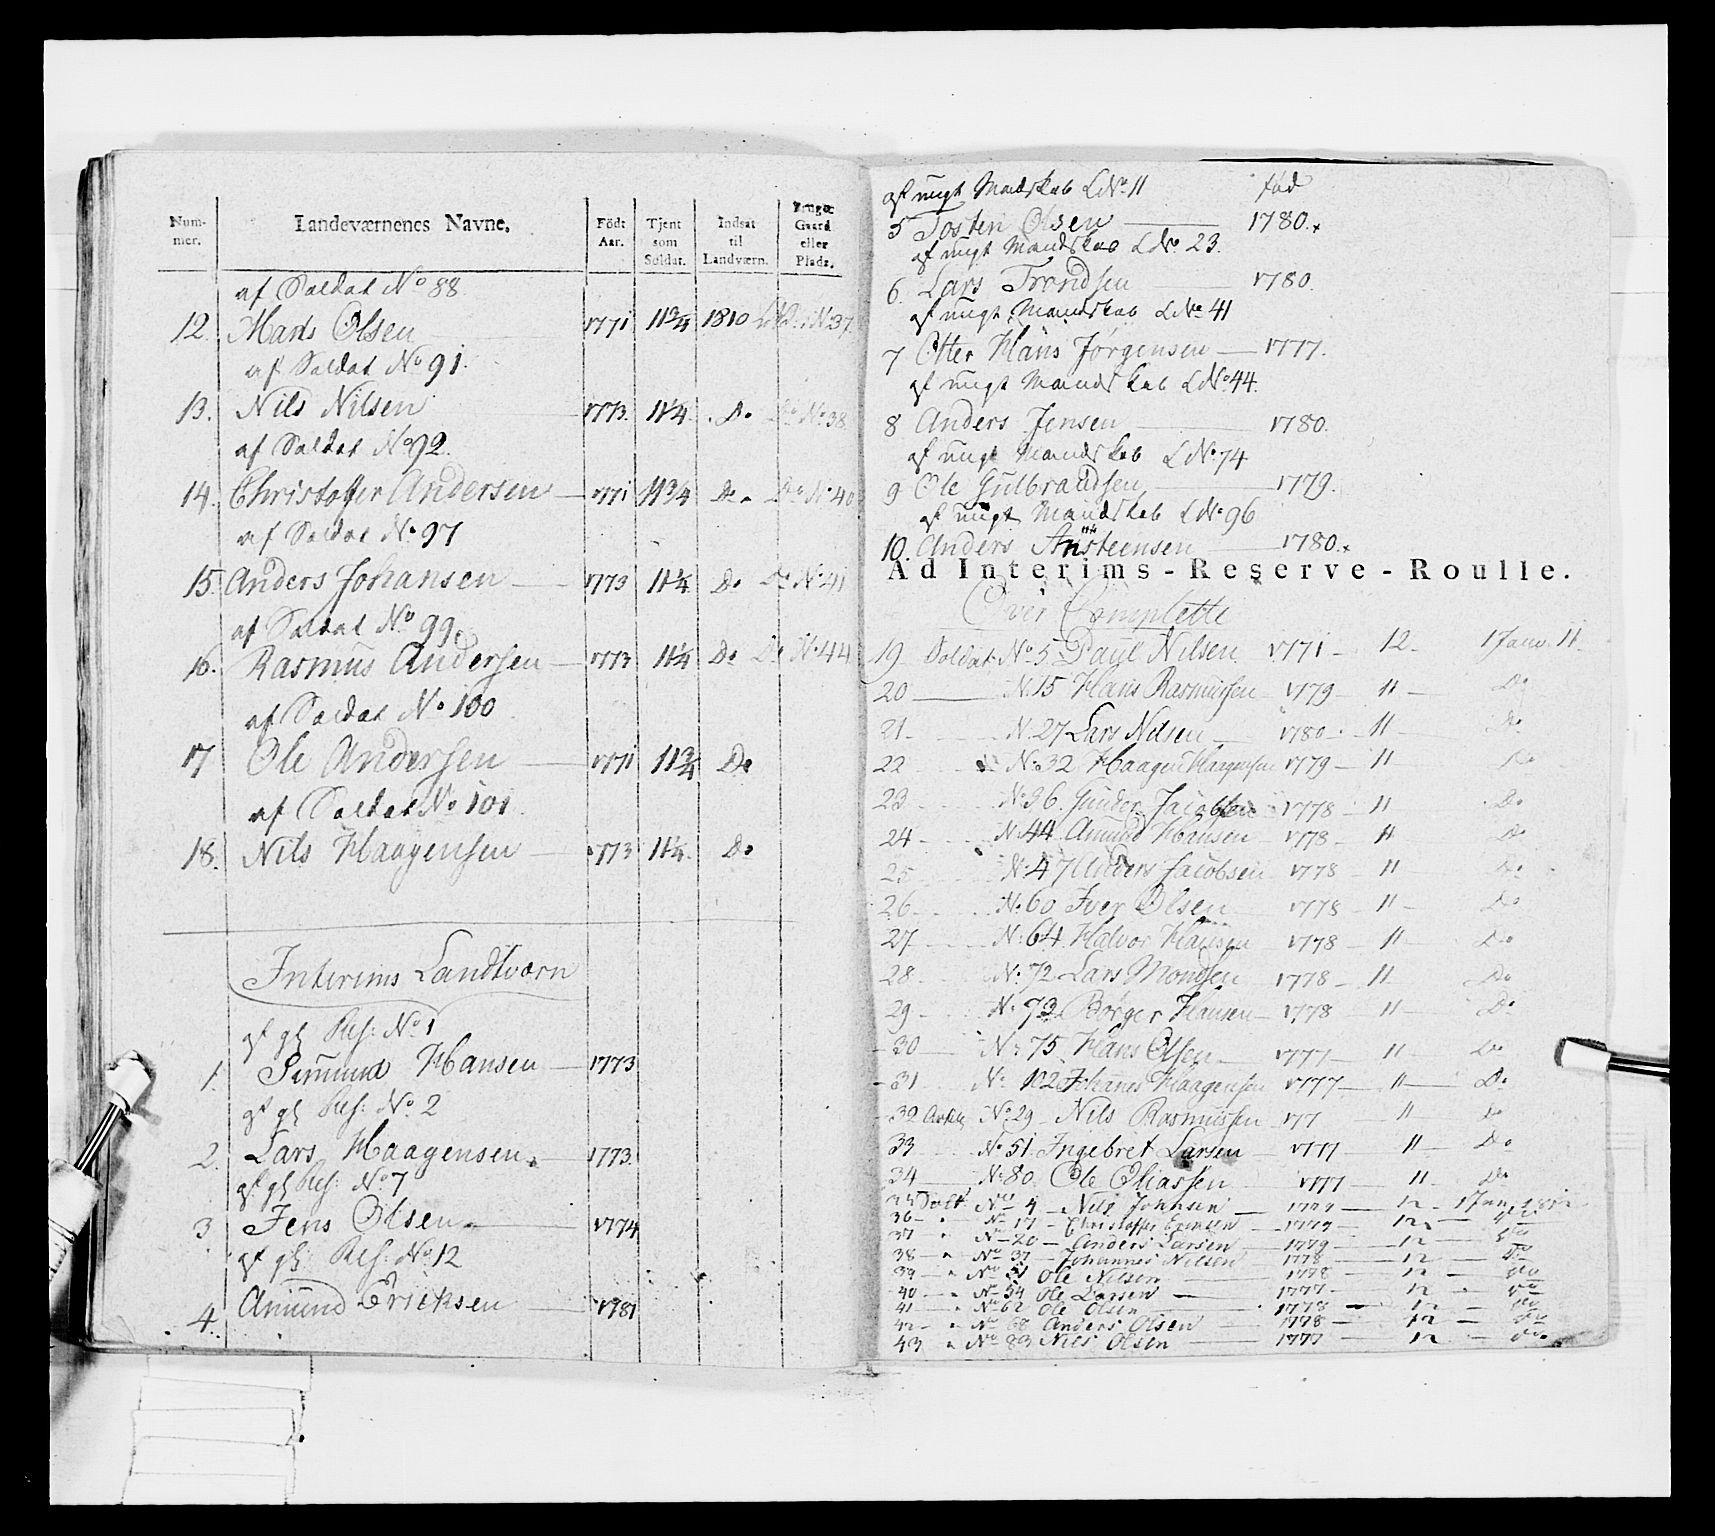 Num-mer. Landeværnenes Navne. Födt Aar. Tjent som Soldat. Indsat til Landværn. Brugende Gaard eller Plads.
af Soldat No 88
12. Mads Olsen 1771 11 3/4 1810 No 37
af Soldat No 91.
13. Nils Nilsen 1773. 11 1/4. Do Do No 38
af Soldat No 92.
14. Christoffer Andersen 1771 11 3/4 Do Do No 40
af Soldat No 97
15. Anders Johansen 1773 11 1/4 Do Do No 41
af Soldat No 99.
16. Rasmus Andersen 1773 11 1/4 Do Do No 44
af Soldat No 100
17 Ole Andersen 1771 11 3/4 Do
af Soldat No 101
18. Nils Haagensen 1773 11 1/4. Do
Interims Landtværn
af gl Res: No 1
1. Simund Hansen 1773
af gl Res: No 2
2. Lars Haagensen 1773.
af gl Res: No 7
3. Jens Olsen 1774
af gl: Res: No 12
4. Amund Ericksen 1781
af ungt Mandskab LNo 11 fød
5 Tosten Olsen 1780.
af ungt Mandskab LNo 23.
6. Lars Trondsen 1780.
af ungt Mandskab LNo 41
7 Otter Hans Jørgensen 1777.
af ungt Mandskab LNo 44.
8 Anders Jensen 1780.
af ungt Mandskab LNo 74
9 Ole Gulbrandsen 1779.
af ungt Mandskab LNo 96
10. Anders Ansteensen 1780.
Ad Interims-Reserve-Roulle.
Over Complette
19 Soldat No 5 Paul Nilsen 1771 - 12 - 1 Janv. 11
20 No 15 Hans Rasmussen 1779 - 11 - Do
21 No 27 Lars Nilsen 1780 - 11 - Do
22 No 32 Haagen Haagensen 1779 - 11 Do
23 No 36. Gunder Jacobsen 1778 - 11 Do
24 No 44 Amund Hansen 1778 - 11 Do
25 No 47 Anders Jacobsen 1778 - 11 Do
26 No 60 Iver Olsen 1778 - 11 - Do
27 No 64 Halvor Hansen 1778 - 11 Do
28 No 72 Lars Mondsen 1778 - 11 Do
29 No 73 Børger Hansen 1778 11 Do
30 No 75 Hans Olsen 1777 - 11 - Do
31 No 102 Johannes Haagensen 1777 - 11 Do
32 No 29 Nils Rasmussen 177 11 Do
33 No 51 Ingebret Larsen 1777 11 Do
34 No 80. Ole Eliassen 1777 11 Do
35 Soldt No 4 Nils Johnsen 12 1 Jan 1812
36 No 17 Christoffer 1779 12 Do
37 No 20 Anders Larsen 1779 12 Do
38 No 37 Johannes Nilsen 1778 12 Do
39 No 51 Ole Nilsen 1778 12 Do
40 No 54 Ole Larsen 1777 12 Do
41 No 62 Ole Olsen 1778 12 Do
42 No 68 Anders Olsen 1778 12 Do
43 No 83 Nils Olsen 1777 12 Do